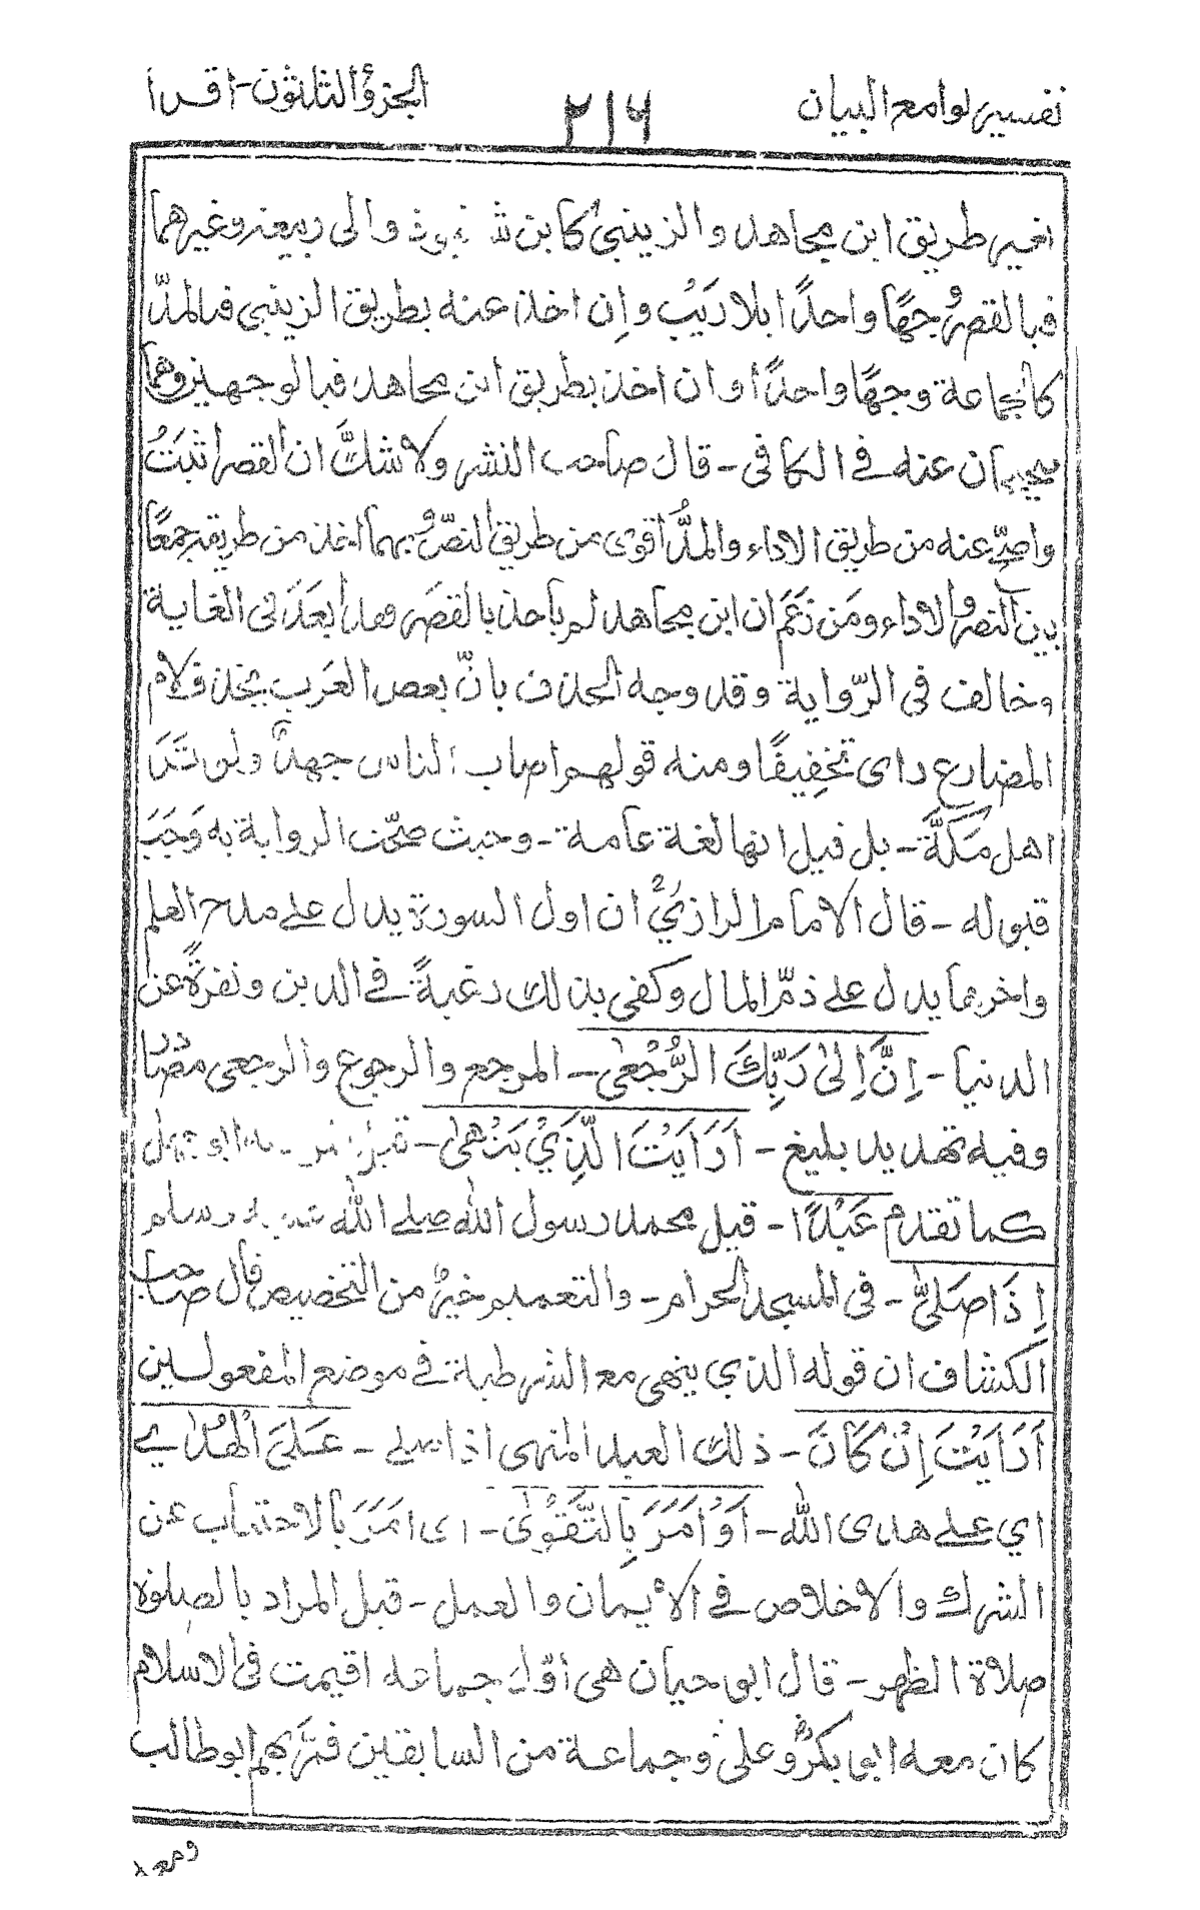 تفسير لوامع البيان
٢١٦
الجزؤ الثلاثون - اقرا
بغير طريق ابن مجاهد والزينبيّ كابن شنبوذ وابى ربيعة وغيرهما
فبالقصر وجهًا واحدًا بلا ريب وإن اخذ عنه بطريق الزينبي فبالمدّ
كالجماعة وجهًا واحدًا وان اخذ بطريق ابن مجاهد فبالوجهين وهما
صحيحان عنه في الكافى - قال صاحب النشر ولا شكَّ ان القصر اثبتُ
واصحّ عنه من طريق الاداء والمدُّ اقوى من طريق النصّ وبهما اخذ من طريقه جمعًا
بين النصّ والاداء ومَن زَعَم ان ابن مجاهد لم ياخذ بالقصر فقد ابعَدَ فى الغاية
وخالف فى الرّواية وقد وجه الحذف بانّ بعض العرب يحذف لام
المضارع راى تخفيفًا ومنه قولهم اصاب الناس جهدٌ ولن تَرَ
اهل مكَّة - بل قيل انها لغة عامة - وحيث صحّت الرواية به وَجَبَ
قبوله - قال الامام الرازيُّ ان اول السورة يدل على مدح العلم
واخرها يدل على ذمّ المال وكفى بذلك رغبةً في الدين ونفرةً عن
الدنيا - إِنَّ إِلىٰ رَبِّكَ الرُّجْعىٰ - المرجع والرجوع والرجعى مصادر
وفيه تهديد بليغ - اَرَاَيْتَ الَّذِيْ يَنْهىٰ - ابو جهل
كما تقدم عَبْدًا - قيل محمد رسول الله صلى الله عليه وسلم
اِذَا صَلّىٰ - فى المسجد الحرام - والتعميم خيرٌ من التخصيص قال صاحب
الكشاف ان قوله الذي ينهى مع الشرطية في موضع المفعولين
اَرَاَيْتَ اِنْ كَانَ - ذلك العبد المنهى اذا صلى - عَلَى الْهُدٰى
اي على هدى الله - اَوْ اَمَرَ بِالتَّقْوىٰ - اى امَرَ بالاجتناب عن
الشرك والاخلاص في الايمان والعمل - قيل المراد بالصلوة
صلاة الظهر - قال ابو حيان هى اوّل جماعة اقيمت فى الاسلام
كان معه ابو بكر وعلىّ وجماعة من السابقين فمرّ بهم ابو طالب
ومعه